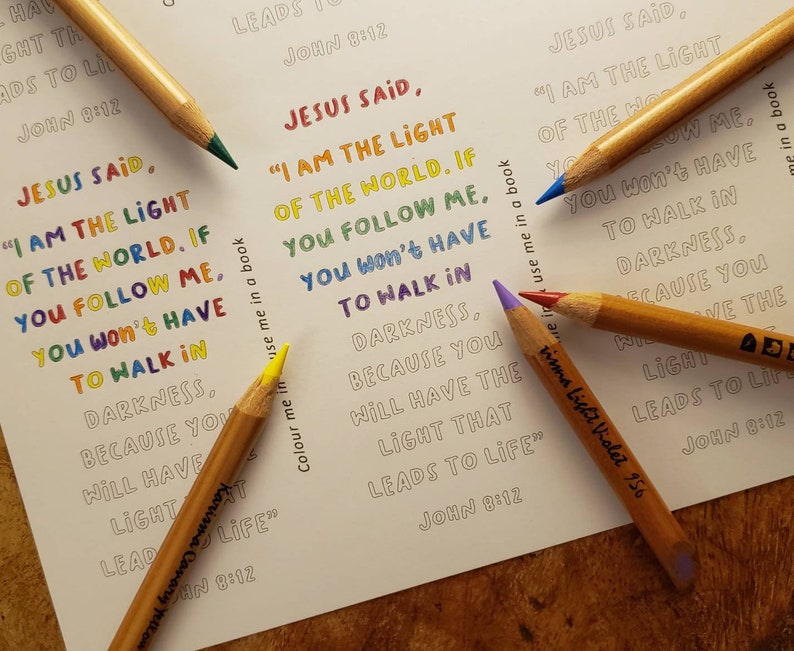 LEADS TO LiFE"
JOHN 8:12
LiGHT TH
LEADS TO LiFE
JOHN 8:12
JESUS SAiD,
"I AM THE LiGHT
OF THE WORLD. IF
YOU FOLLOW ME,
YOU WON'T HAVE
TO WALK iN
DARKNESS,
BECAUSE YOU
WiLL HAVE
LiGHT THAT
LEADS LiFE"
JOHN 8:12
Colour me in use me in a book
JESUS SAiD,
"I AM THE LiGHT
OF THE WORLD. IF
YOU FOLLOW ME,
YOU WON'T HAVE
TO WALK iN
DARKNESS,
BECAUSE YOU
WiLL HAVE THE
LiGHT THAT
LEADS TO LiFE"
JOHN 8:12
me in use me in a book
JESUS SAiD,
"I AM THE LiGHT
OF THE
YOU FOLLOW ME,
YOU WON'T HAVE
TO WALK iN
DARKNESS,
BECAUSE YOU
WiLL HAVE THE
LiGHT
LEADS TO LiFE"
JOHN 8:12
me in a book
Karisma Canary Yellow
Light Violet 956